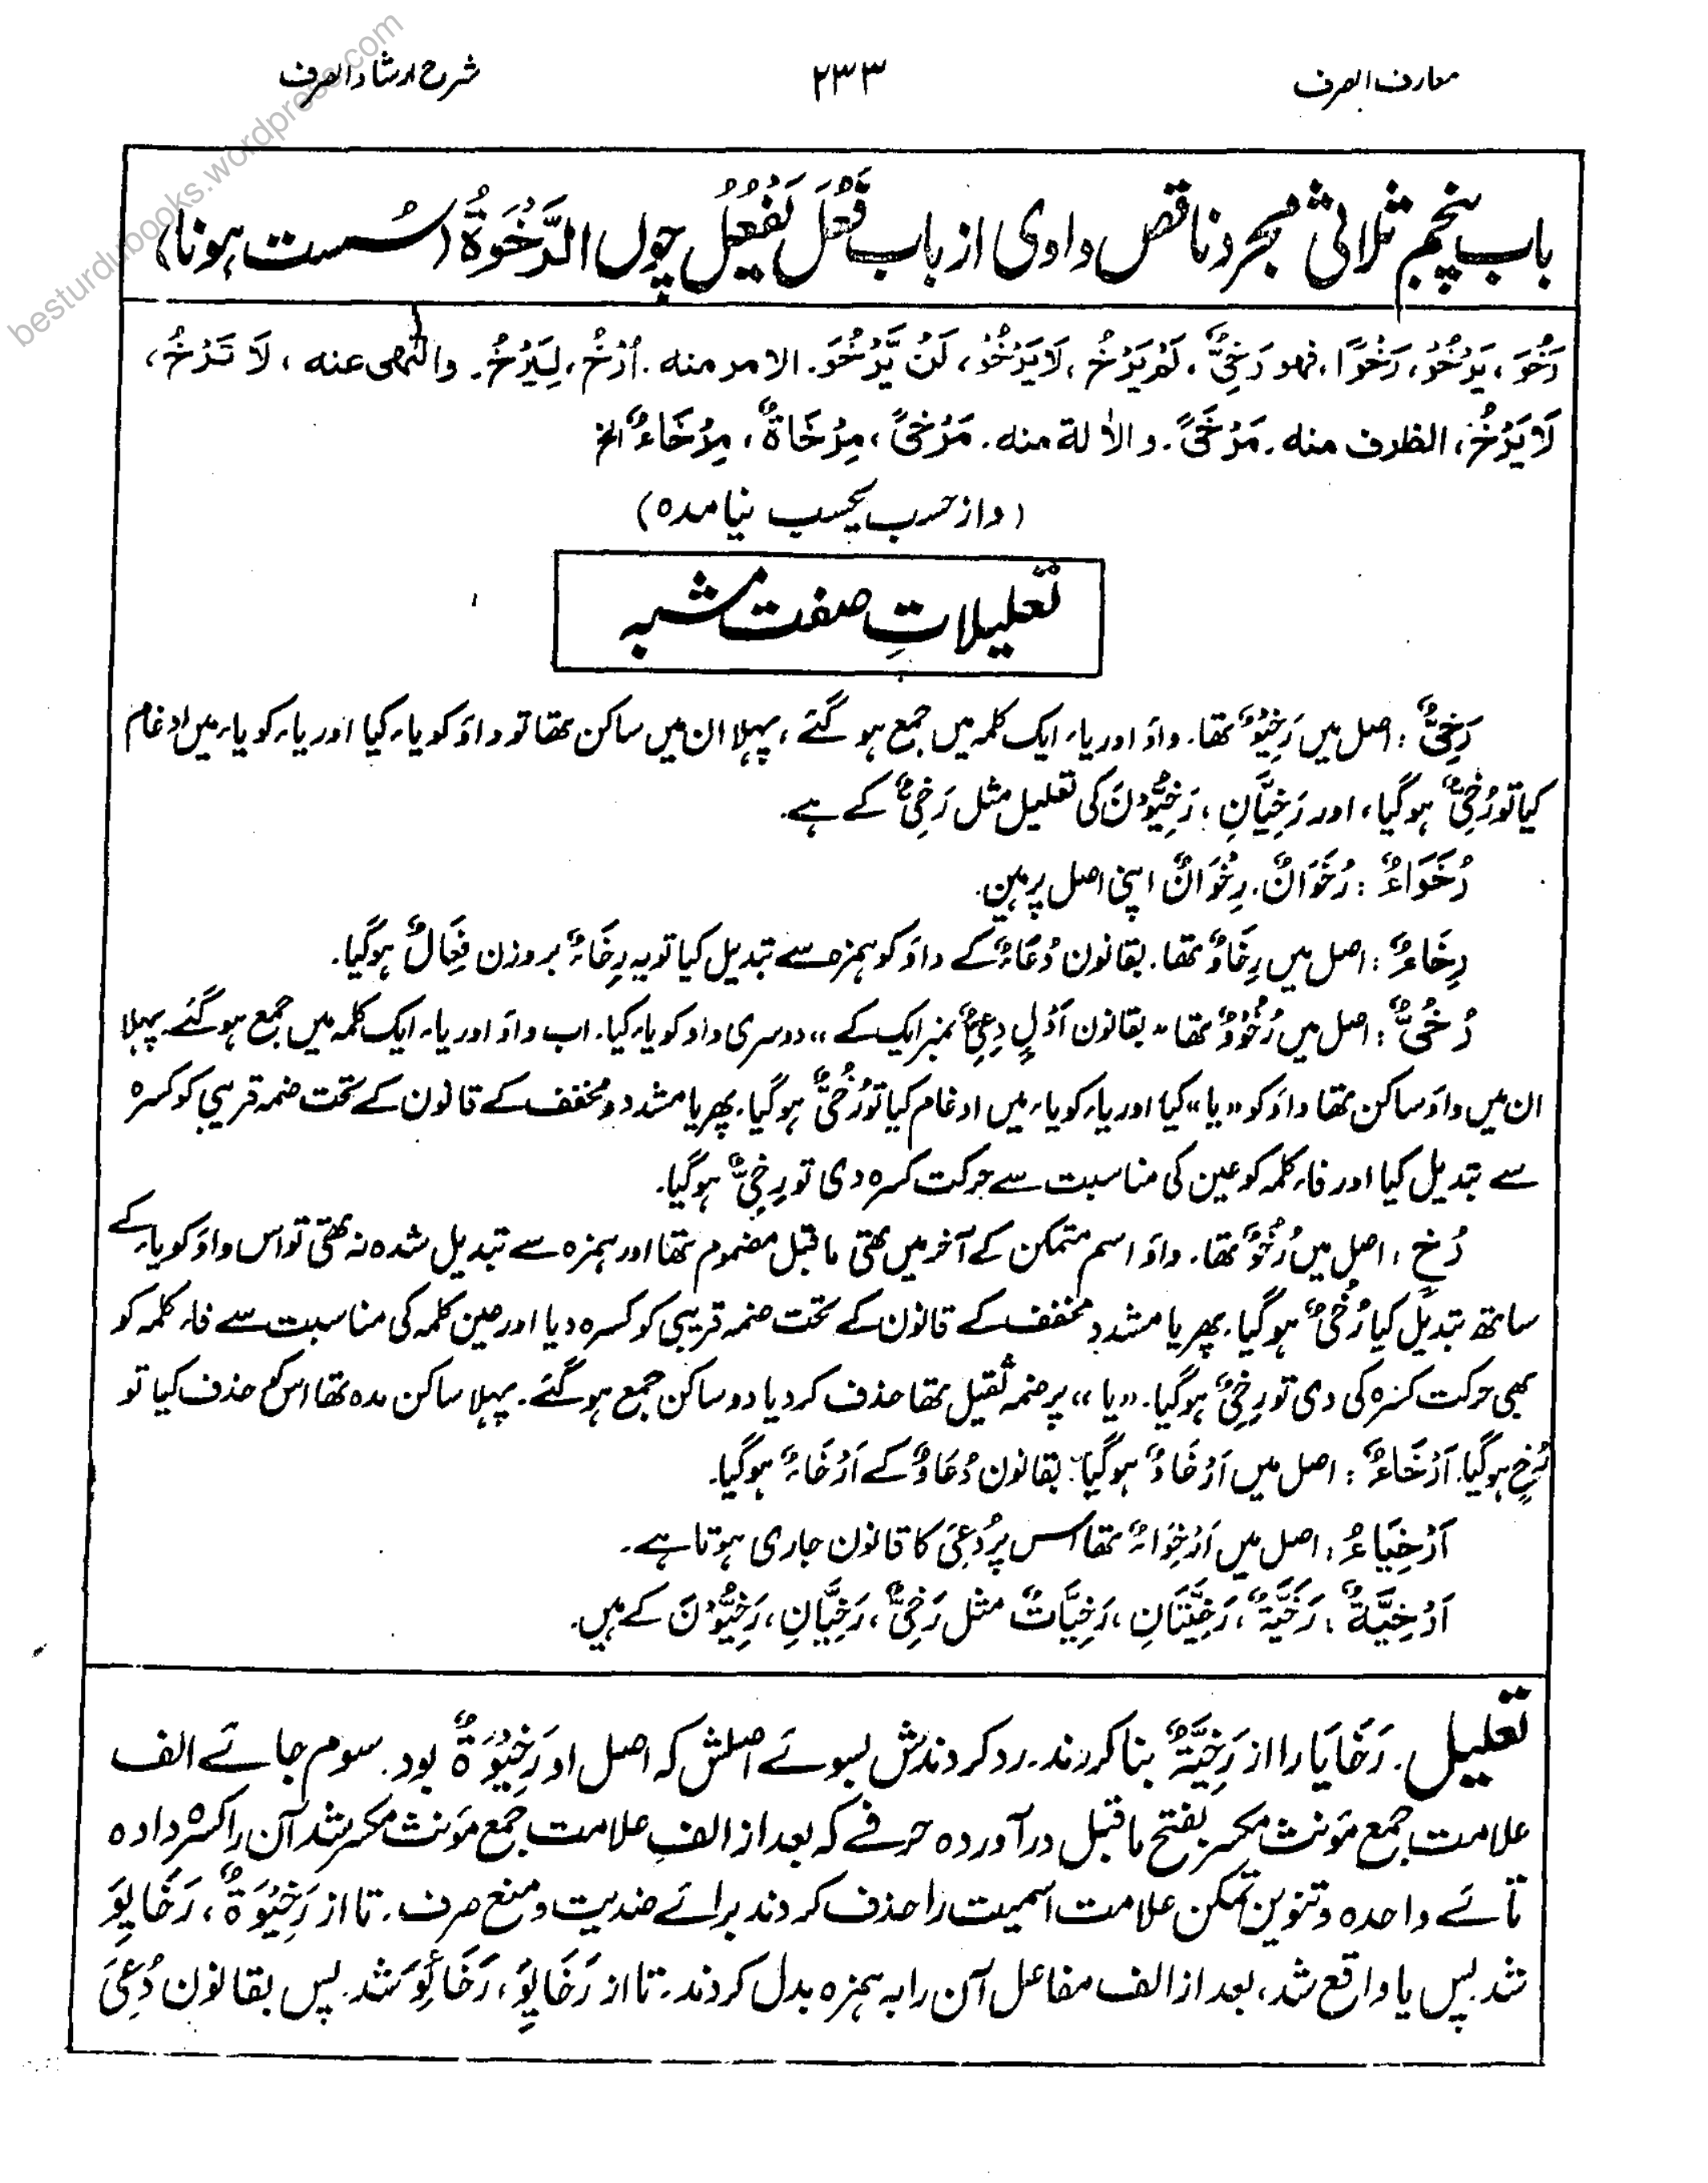 معارف الصرف
۲۳۳
شرح ارشاد الصرف
besturdubooks.wordpress.com
باب پنجم ثلاثی مجرد ناقص واوی از باب فَعُلَ یَفْعُلُ چوں الرَّخْوَةُ (سُست ہونا)
رَخُوَ، یَرْخُوْ، رَخْوًا، فھو رَخِیٌّ، لَمْ یَرْخُ، لَا یَرْخُوْ، لَنْ یَّرْخُوَ۔ الامر منه۔ اُرْخُ، لِیَرْخُ۔ والنھی عنه، لَا تَرْخُ،
لَا یَرْخُ، الظرف منه۔ مَرْخًی۔ والاٰلة منه۔ مَرْخًی، مِرْخَاةٌ، مِرْخَاءٌ الخ
(واز حسب یحسب نیامدہ)
تعلیلاتِ صفت مشبہ
رَخِیٌّ: اصل میں رَخِیْوٌ تھا۔ واؤ اور یاء ایک کلمہ میں جمع ہو گئے، پہلا ان میں ساکن تھا تو واؤ کو یاء کیا اور یاء کو یاء میں ادغام
کیا تو رُخِیٌّ ہوگیا، اور رَخِیَّانِ، رَخِیُّوْنَ کی تعلیل مثل رَخِیٌّ کے ہے۔
رُخَوَاءُ: رُخْوَانٌ۔ رِخْوَانٌ اپنی اصل پر ہیں۔
رِخَاءٌ: اصل میں رِخَاوٌ تھا۔ بقانون دُعَاءٌ کے واؤ کو ہمزہ سے تبدیل کیا تو یہ رِخَاءٌ بروزن فِعَالٌ ہوگیا۔
رُخُیٌّ: اصل میں رُخُوْوٌ تھا "بقانون اَدْلٍ دِعِیٌّ نمبر ایک کے" دوسری واو کو یاء کیا۔ اب واؤ اور یاء ایک کلمہ میں جمع ہو گئے پہلا
ان میں واؤ ساکن تھا واؤ کو "یا" کیا اور یاء کو یاء میں ادغام کیا تو رُخُیٌّ ہوگیا۔ پھر یا مشدد و مخفف کے قانون کے تحت ضمہ قریبی کو کسرہ
سے تبدیل کیا اور فاء کلمہ کو عین کی مناسبت سے حرکت کسرہ دی تو رِخِیٌّ ہوگیا۔
رُخٍ: اصل میں رُخُوٌ تھا۔ واؤ اسم متمکن کے آخر میں تھی ماقبل مضموم تھا اور ہمزہ سے تبدیل شدہ نہ تھی تو اس واؤ کو یاء کے
ساتھ تبدیل کیا رُخُیٌ ہوگیا۔ پھر یا مشدد مخفف کے قانون کے تحت ضمہ قریبی کو کسرہ دیا اور عین کلمہ کی مناسبت سے فاء کلمہ کو
بھی حرکت کسرہ کی دی تو رِخِیٌ ہوگیا۔ "یا" پر ضمہ ثقیل تھا حذف کر دیا دو ساکن جمع ہو گئے۔ پہلا ساکن مدہ تھا اس کو حذف کیا تو
رِخٍ ہوگیا۔ اَرْخَاءٌ: اصل میں اَرْخَاوٌ ہوگیا۔ بقانون دُعَاوٌ کے اَرْخَاءٌ ہوگیا۔
اَرْخِیَاءُ: اصل میں اَرْخِوَاءُ تھا اس پر دُعِیَ کا قانون جاری ہوتا ہے۔
اَرْخِیَّةٌ: رَخِیَّةٌ، رَخِیَّتَانِ، رَخِیَّاتٌ مثل رَخِیٌّ، رَخِیَّانِ، رَخِیُّوْنَ کے ہیں۔
تعلیل۔ رَخَایَا را از رَخِیَّةٌ بنا کردند۔ رد کردندش بسوئے اصلش کہ اصل او رَخِیْوَةٌ بود۔ سوم جائے الف
علامت جمع مؤنث مکسر بفتح ماقبل درآوردہ حرفے کہ بعد از الفِ علامت جمع مؤنث مکسر شد آن را کسرہ دادہ
تائے واحدہ و تنوین تمکن علامت اسمیت را حذف کردند برائے ضدیت و منع صرف۔ تا از رَخِیْوَةٌ، رَخَایِوُ
شد۔ پس یا واقع شد، بعد از الف مفاعل آن را بہ ہمزہ بدل کردند۔ تا از رَخَایِوُ، رَخَائِوُ شد۔ پس بقانون دُعِیَ